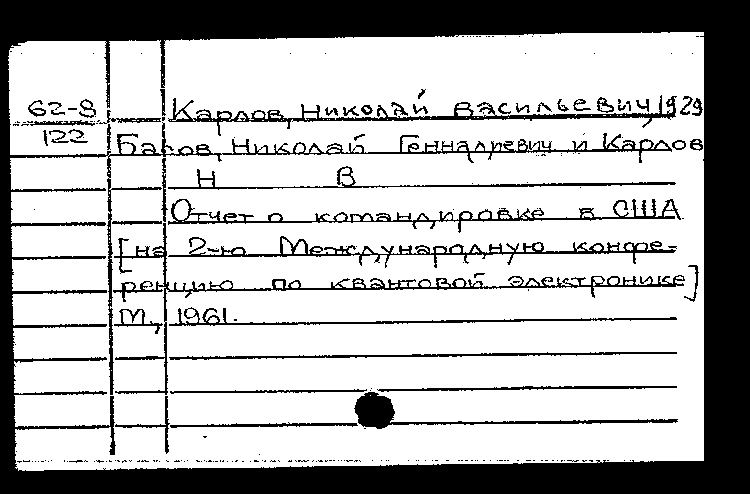 62-8
122
Карлов, Николай Васильевич, 1929
Басов, Николай Геннадиевич и Карлов
Н В
Отчет о командировке в США
[на 2-ю Международную конфе-
ренцию по квантовой электронике]
М., 1961.